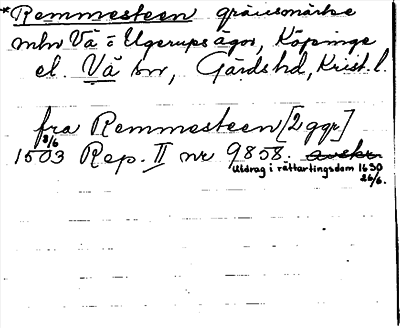 *Remmesteen gränsmärke
mln Vä o Ugerups ägor, Köpinge
el. Vä sn, Gärds hd, Krist. l.
fra Remmesteen [2 ggr]
1503 8/6 Rep. II nr 9858. avskr.
Utdrag i rättartingsdom 1630
26/6.